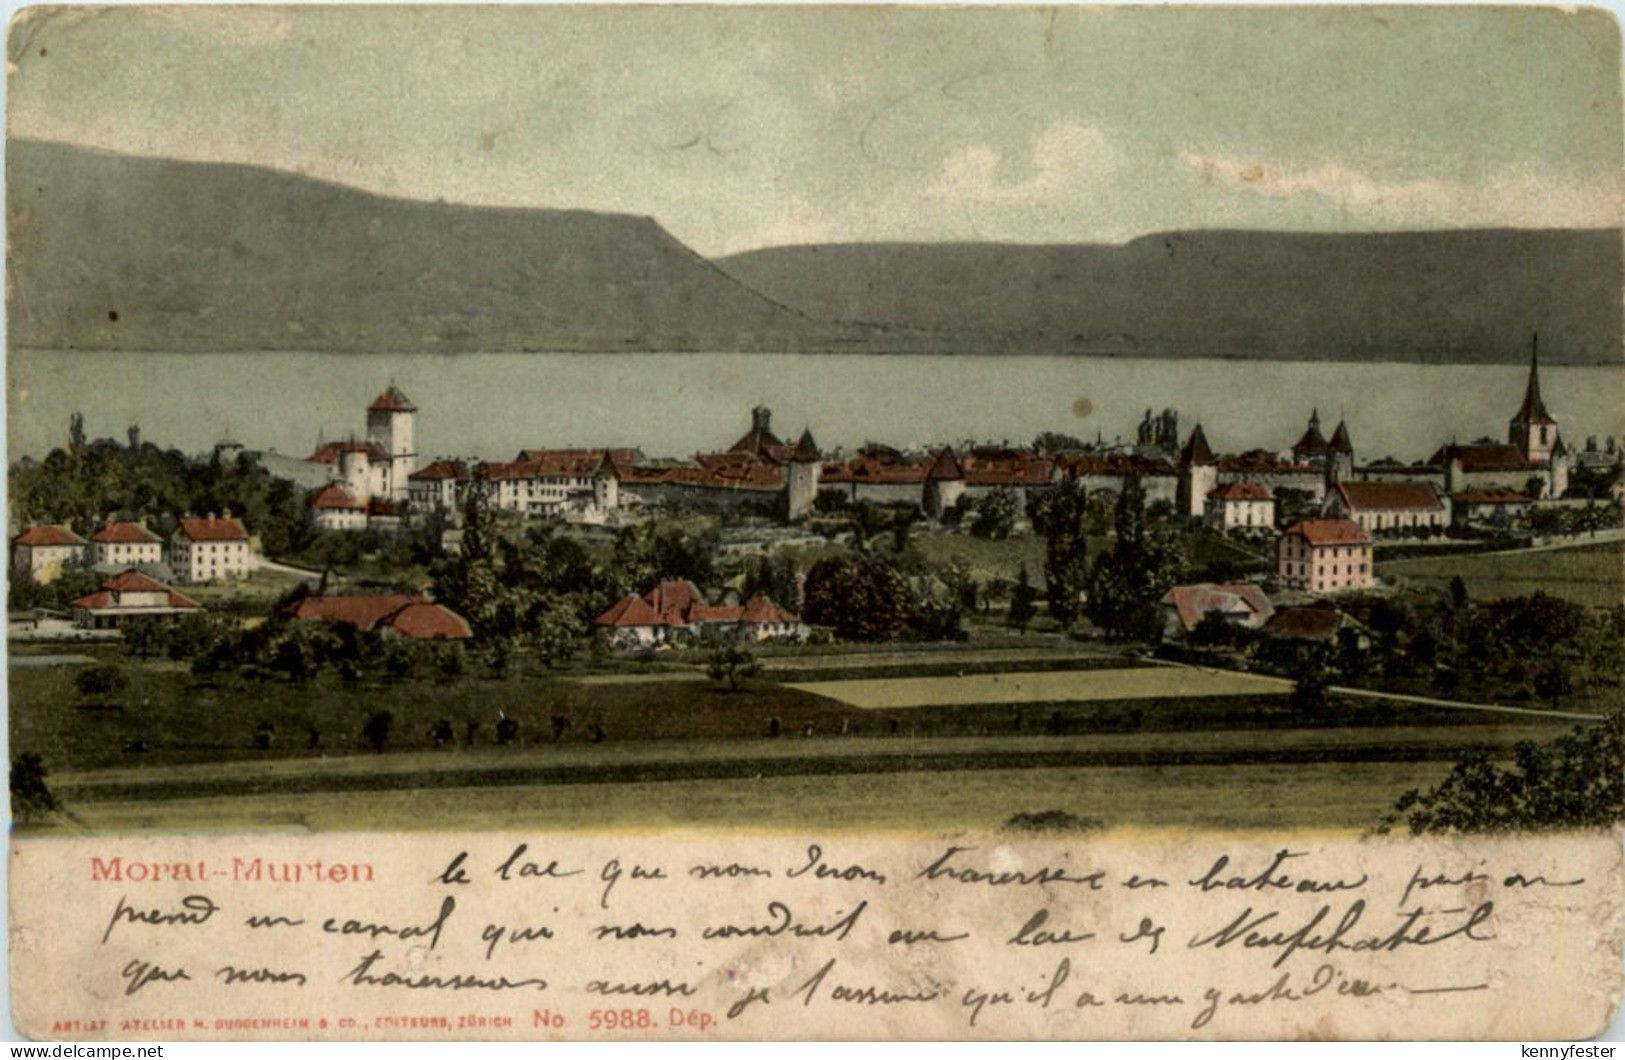 Morat-Murten
le lac que nous devons traverser en bateau puis on
prend un canal qui nous conduit au lac de Neufchatel
que nous traverserons aussi je t'assure qu'il a une
ARTIST ATELIER H. GUGGENHEIM & CO., EDITEURS, ZÜRICH No 5988. Dép.
delcampe.net
kennyfester